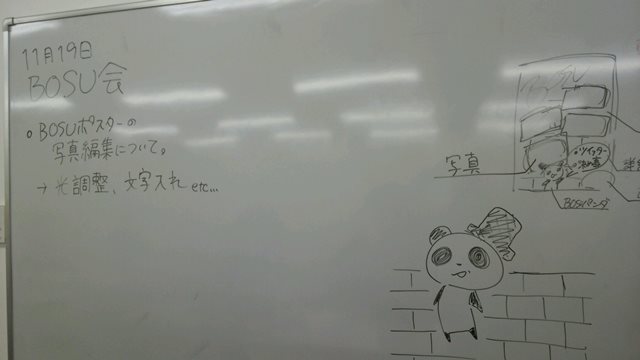 11月19日
BOSU会
○ BOSUポスターの
写真編集について。
→ 光調整、文字入れ etc...
BOSU
写真
ツイッター
BOSUパンダ